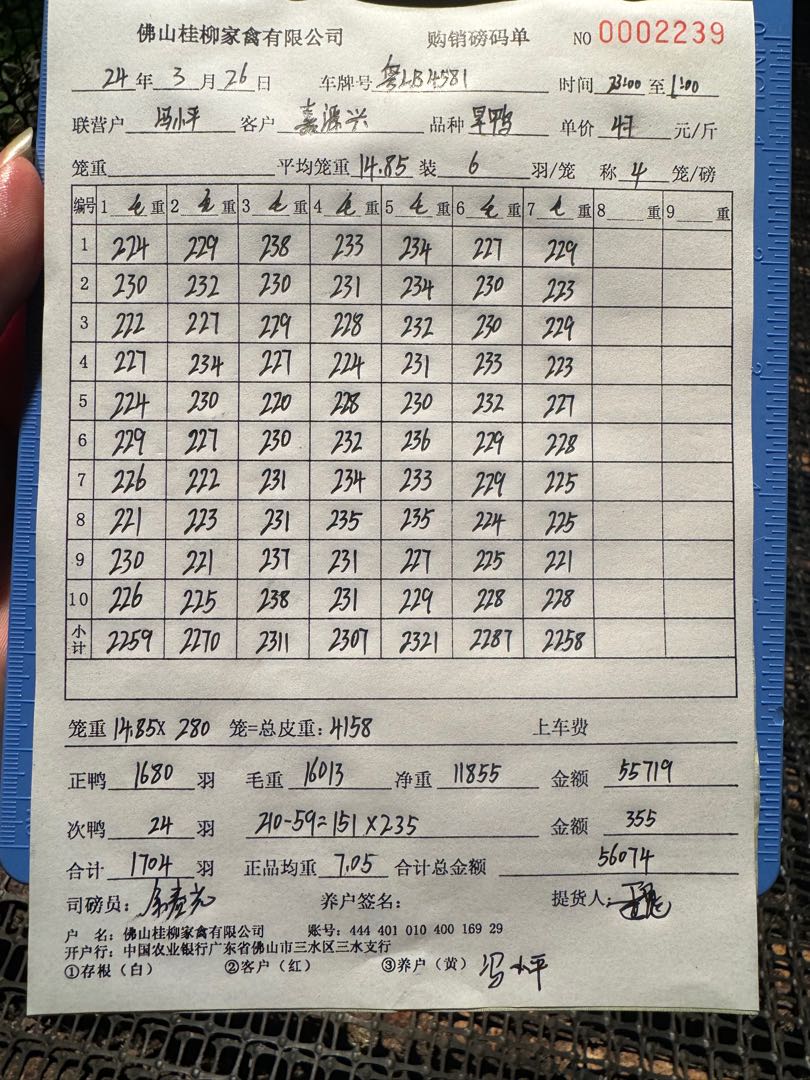 佛山桂柳家禽有限公司 购销磅码单 NO 0002239
24年3月26日 车牌号 粤LB4581 时间 23:00 至 1:00
联营户 冯小平 客户 嘉源兴 品种 旱鸭 单价 4.7 元/斤
笼重 平均笼重 14.85 装 6 羽/笼 称 4 笼/磅
编号 1 毛 重 2 毛 重 3 毛 重 4 毛 重 5 毛 重 6 毛 重 7 毛 重 8 重 9 重
1 224 229 238 233 234 227 229
2 230 232 230 231 234 230 223
3 222 227 229 228 232 230 229
4 227 234 227 224 231 233 223
5 224 230 220 228 230 232 227
6 229 227 230 232 236 229 228
7 226 222 231 234 233 229 225
8 221 223 231 235 235 224 225
9 230 221 237 231 227 225 221
10 226 225 238 231 229 228 228
小计 2259 2270 2311 2307 2321 2287 2258
笼重 14.85 X 280 笼=总皮重: 4158 上车费
正鸭 1680 羽 毛重 16013 净重 11855 金额 55719
次鸭 24 羽 210-59=151X235 金额 355
合计 1704 羽 正品均重 7.05 合计总金额 56074
司磅员: 养户签名: 提货人:
户 名: 佛山桂柳家禽有限公司 账号: 444 401 010 400 169 29
开户行: 中国农业银行广东省佛山市三水区三水支行
①存根(白) ②客户(红) ③养户(黄) 冯小平